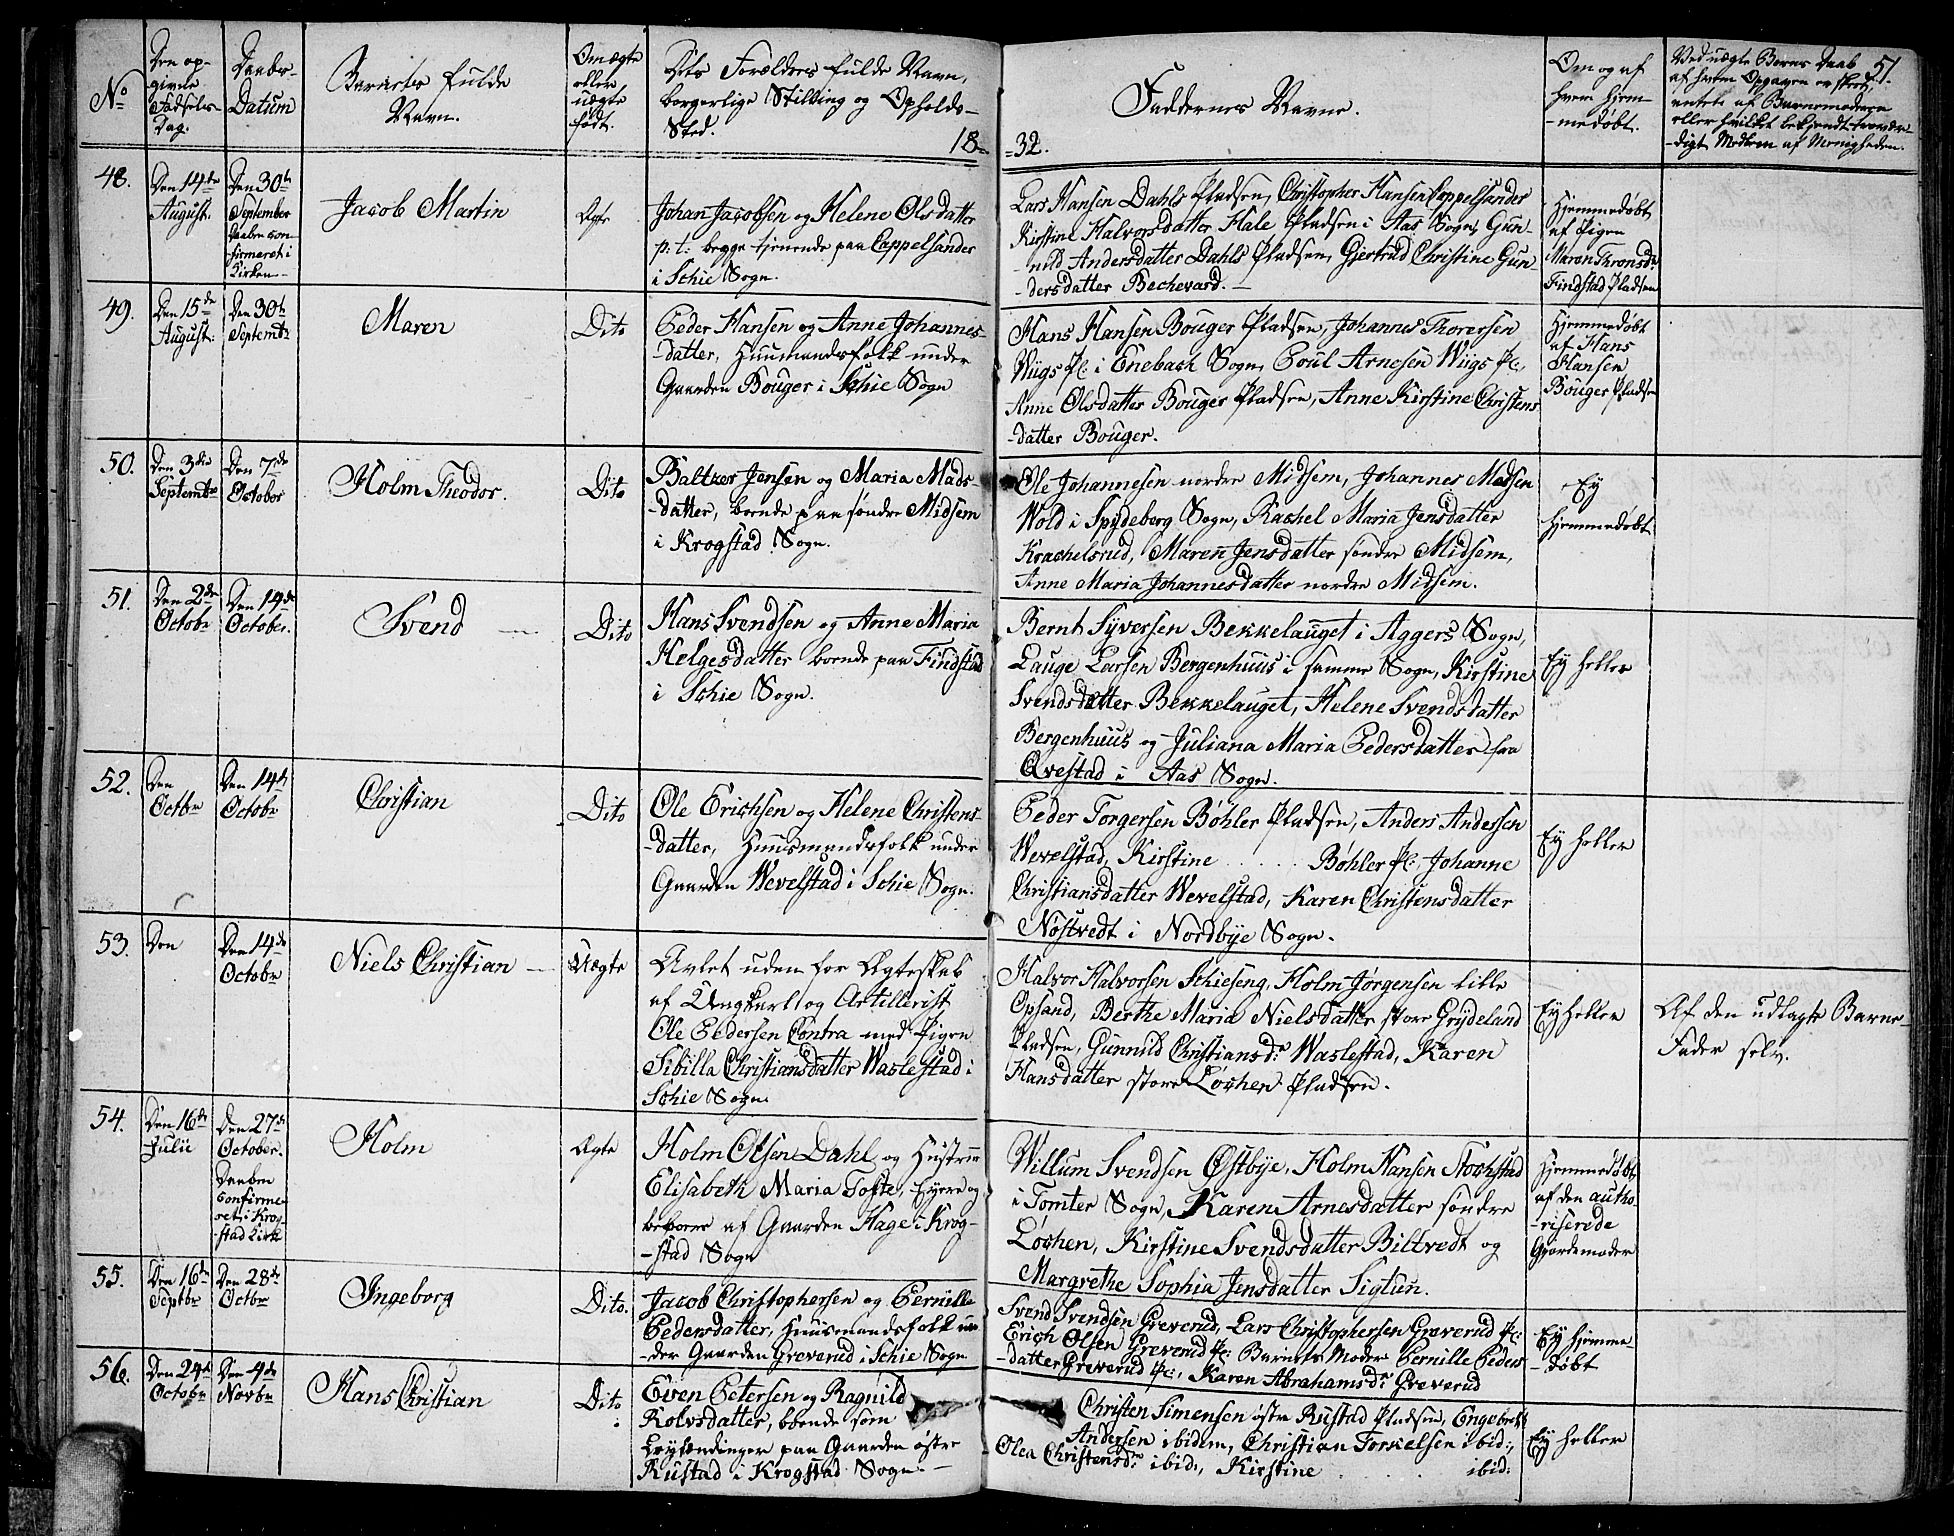 No
Den op-
givne
Fødsels-
Dag.
Daabs-
Datum
Barnets fulde
Navn.
Om ægte
eller
uægte
født.
Dets Forældres fulde Navn,
borgerlige Stilling og Opholds-
Sted.
18-
-32.
Faddernes Navne.
Om og af
hvem hjem-
-medøbt.
Ved uægte Børns Daab
af hvem Opgaven er skeet,
entete af Barnemoderen
eller hvilket bekjendt trovær-
-digt Medlem af Menigheden.
51.
48.
Den 14de
August.
Den 30te
September
Daaben con-
firmeret i
Kirken.-
Jacob Martin
Ægte
Johan Jacobsen og Helene Olsdatter
p: t: begge tjenende paa Cappelsander
i Schie Sogn.
Lars Hansen Dahls Pladsen, Christopher Hansen Cappelsander
Kirstine Halvorsdatter Hale Pladsen i Aas Sogn, Gun-
-nild Andersdatter Dahls Pladsen, Gjertrud Christine Gun-
dersdatter Bechevard.-
Hjemmedøbt
af Pigen
Maren Tronsdr
Findstad Pladsen
49.
Den 15de
August:
Den 30te
Septembr
Maren
Dito
Peder Hansen og Anne Johannes-
-datter, Huusmandsfolk under
Gaarden Bouger i Schie Sogn
Hans Hansen Bouger Pladsen, Johannes Thoresen
Wiigs Pl: i Enebach Sogn, Poul Arnesen Wiigs Pl:,
Anne Olsdatter Bouger Pladsen, Anne Kirstine Christens-
-datter Bouger.
Hjemmedøbt
af Hans
Hansen
Bouger Pladsen
50.
Den 3die
Septembr
Den 7de
October
Holm Theodor.
Dito
Baltzer Jensen og Maria Mads-
-datter, boende paa søndre Midsem
i Krogstad Sogn.
Ole Johannesen nordre Midsem, Johannes Madsen
Wold i Spydeberg Sogn, Rachel Maria Jensdatter
Krachelsrud, Maren Jensdatter søndre Midsem,
Anne Maria Johannesdatter nordre Midsem.
Ey
hjemmedøbt
51.
Den 2den
Octobr
Den 14de
October.
Svend
Dito
Hans Svendsen og Anne Maria
Helgesdatter boende paa Findstad
i Schie Sogn.
Bernt Syversen Bekkelauget i Aggers Sogn,
Lauge Larsen Bergenhuus i samme Sogn, Kirstine
Svendsdatter Bekkelauget, Helene Svendsdatter
Bergenhuus og Juliana Maria Pedersdatter fra
Qvestad i Aas Sogn.
Ey heller
52.
Den
Octbr
Den 14de
Octobr
Christian
Dito
Ole Erichsen og Helene Christens-
-datter, Huusmandsfolk under
Gaarden Wevelstad i Schie Sogn.
Peder Torgersen Bøhler Pladsen, Anders Andersen
Wevelstad, Kirstine ..... Bøhler Pl: Johanne
Christiansdatter Wevelstad, Karen Christensdatter
Nøstvedt i Nordbye Sogn.
Ey heller
53.
Den
Den 14de
Octobr
Niels Christian
Uægte
Avlet uden for Ægteskab
af Ungkarl og Artillerist
Ole Pedersen Contra med Pigen
Sibilla Christiansdatter Waslestad i
Schie Sogn.
Halvor Halvorsen Schieseng, Holm Jørgensen lille
Opsand, Berthe Maria Nielsdatter store Grydeland
Pladsen, Gunnild Christiansdr Waslestad, Karen
Hansdatter store Løchen Pladsen.
Ey heller
Af den udlagte Barne-
Fader selv.
54.
Den 16de
Julii
Den 27de
October.
Daaben
Confirme-
ret i Krog-
stad Kirke
Holm
Ægte
Holm Olsen Dahl og Hustrue
Elisabeth Maria Tofte, Eyere og
beboere af Gaarden Hage i Krog-
-stad Sogn
Willum Svendsen Østbye, Holm Hansen Stochstad
i Tomter Sogn, Karen Arnesdatter søndre
Løchen, Kirstine Svendsdatter Biltvedt og
Margrethe Sophia Jensdatter Siglun.
Hjemmedøbt
af den autho-
-riserede
Gjordemoder
55.
Den 16de
Septbr
Den 28de
Octbr
Ingeborg
Dito.
Jacob Christophersen og Pernille
Pedersdatter, Huusmandsfolk un-
-der Gaarden Greverud i Schie Sogn
Svend Svendsen Greverud, Lars Christophersen Greverud Pl:
Erich Olsen Greverud Pl: Barnets Moder Pernille Peders-
-datter Greverud Pl:, Karen Abrahamsdr Greverud
Ey hjemme-
-døbt
56.
Den 24de
Octobr
Den 4de
Novbr
Hans Christian
Dito
Even Petersen og Ragnild
Rolvsdatter, boende som
Leylændinger paa Gaarden østre
Rustad i Krogstad Sogn.-
Christen Simensen østre Rustad Pladsen, Engebret
Andersen ibidem, Christian Torkelsen ibid:,
Olea Christensdr ibid:, Kirstine ... ibid:
Ey heller